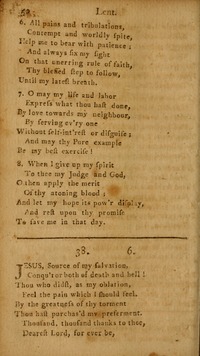 Lent.
6. All pains and tribulations,
Contempt and worldly spite,
Help me to bear with patience ;
And always fix my sight
On that unerring rule of faith,
Thy blessed step to follow,
Until my latest breath.
7. O may my life and labor
Expreſs what thou haſt done,
By love towards my neighbour,
By ſerving ev'ry one
Without ſelf-int'reſt or diſguiſe ;
And may thy Pure example
Be my beſt exerciſe !
8. When I give up my ſpirit
To thee my Judge and God,
O then apply the merit
Of thy atoning blood ;
And let my hope its pow'r diſplay,
And reſt upon thy promiſe
To ſave me in that day.
38. 6.
JESUS, Source of my ſalvation,
Conqu'ror both of death and hell !
Thou who didſt, as my oblation,
Feel the pain which I ſhould feel.
By the greatneſs of thy torment
Thou haſt purchas'd my preferment.
Thouſand, thouſand thanks to thee,
Deareſt Lord, for ever be,